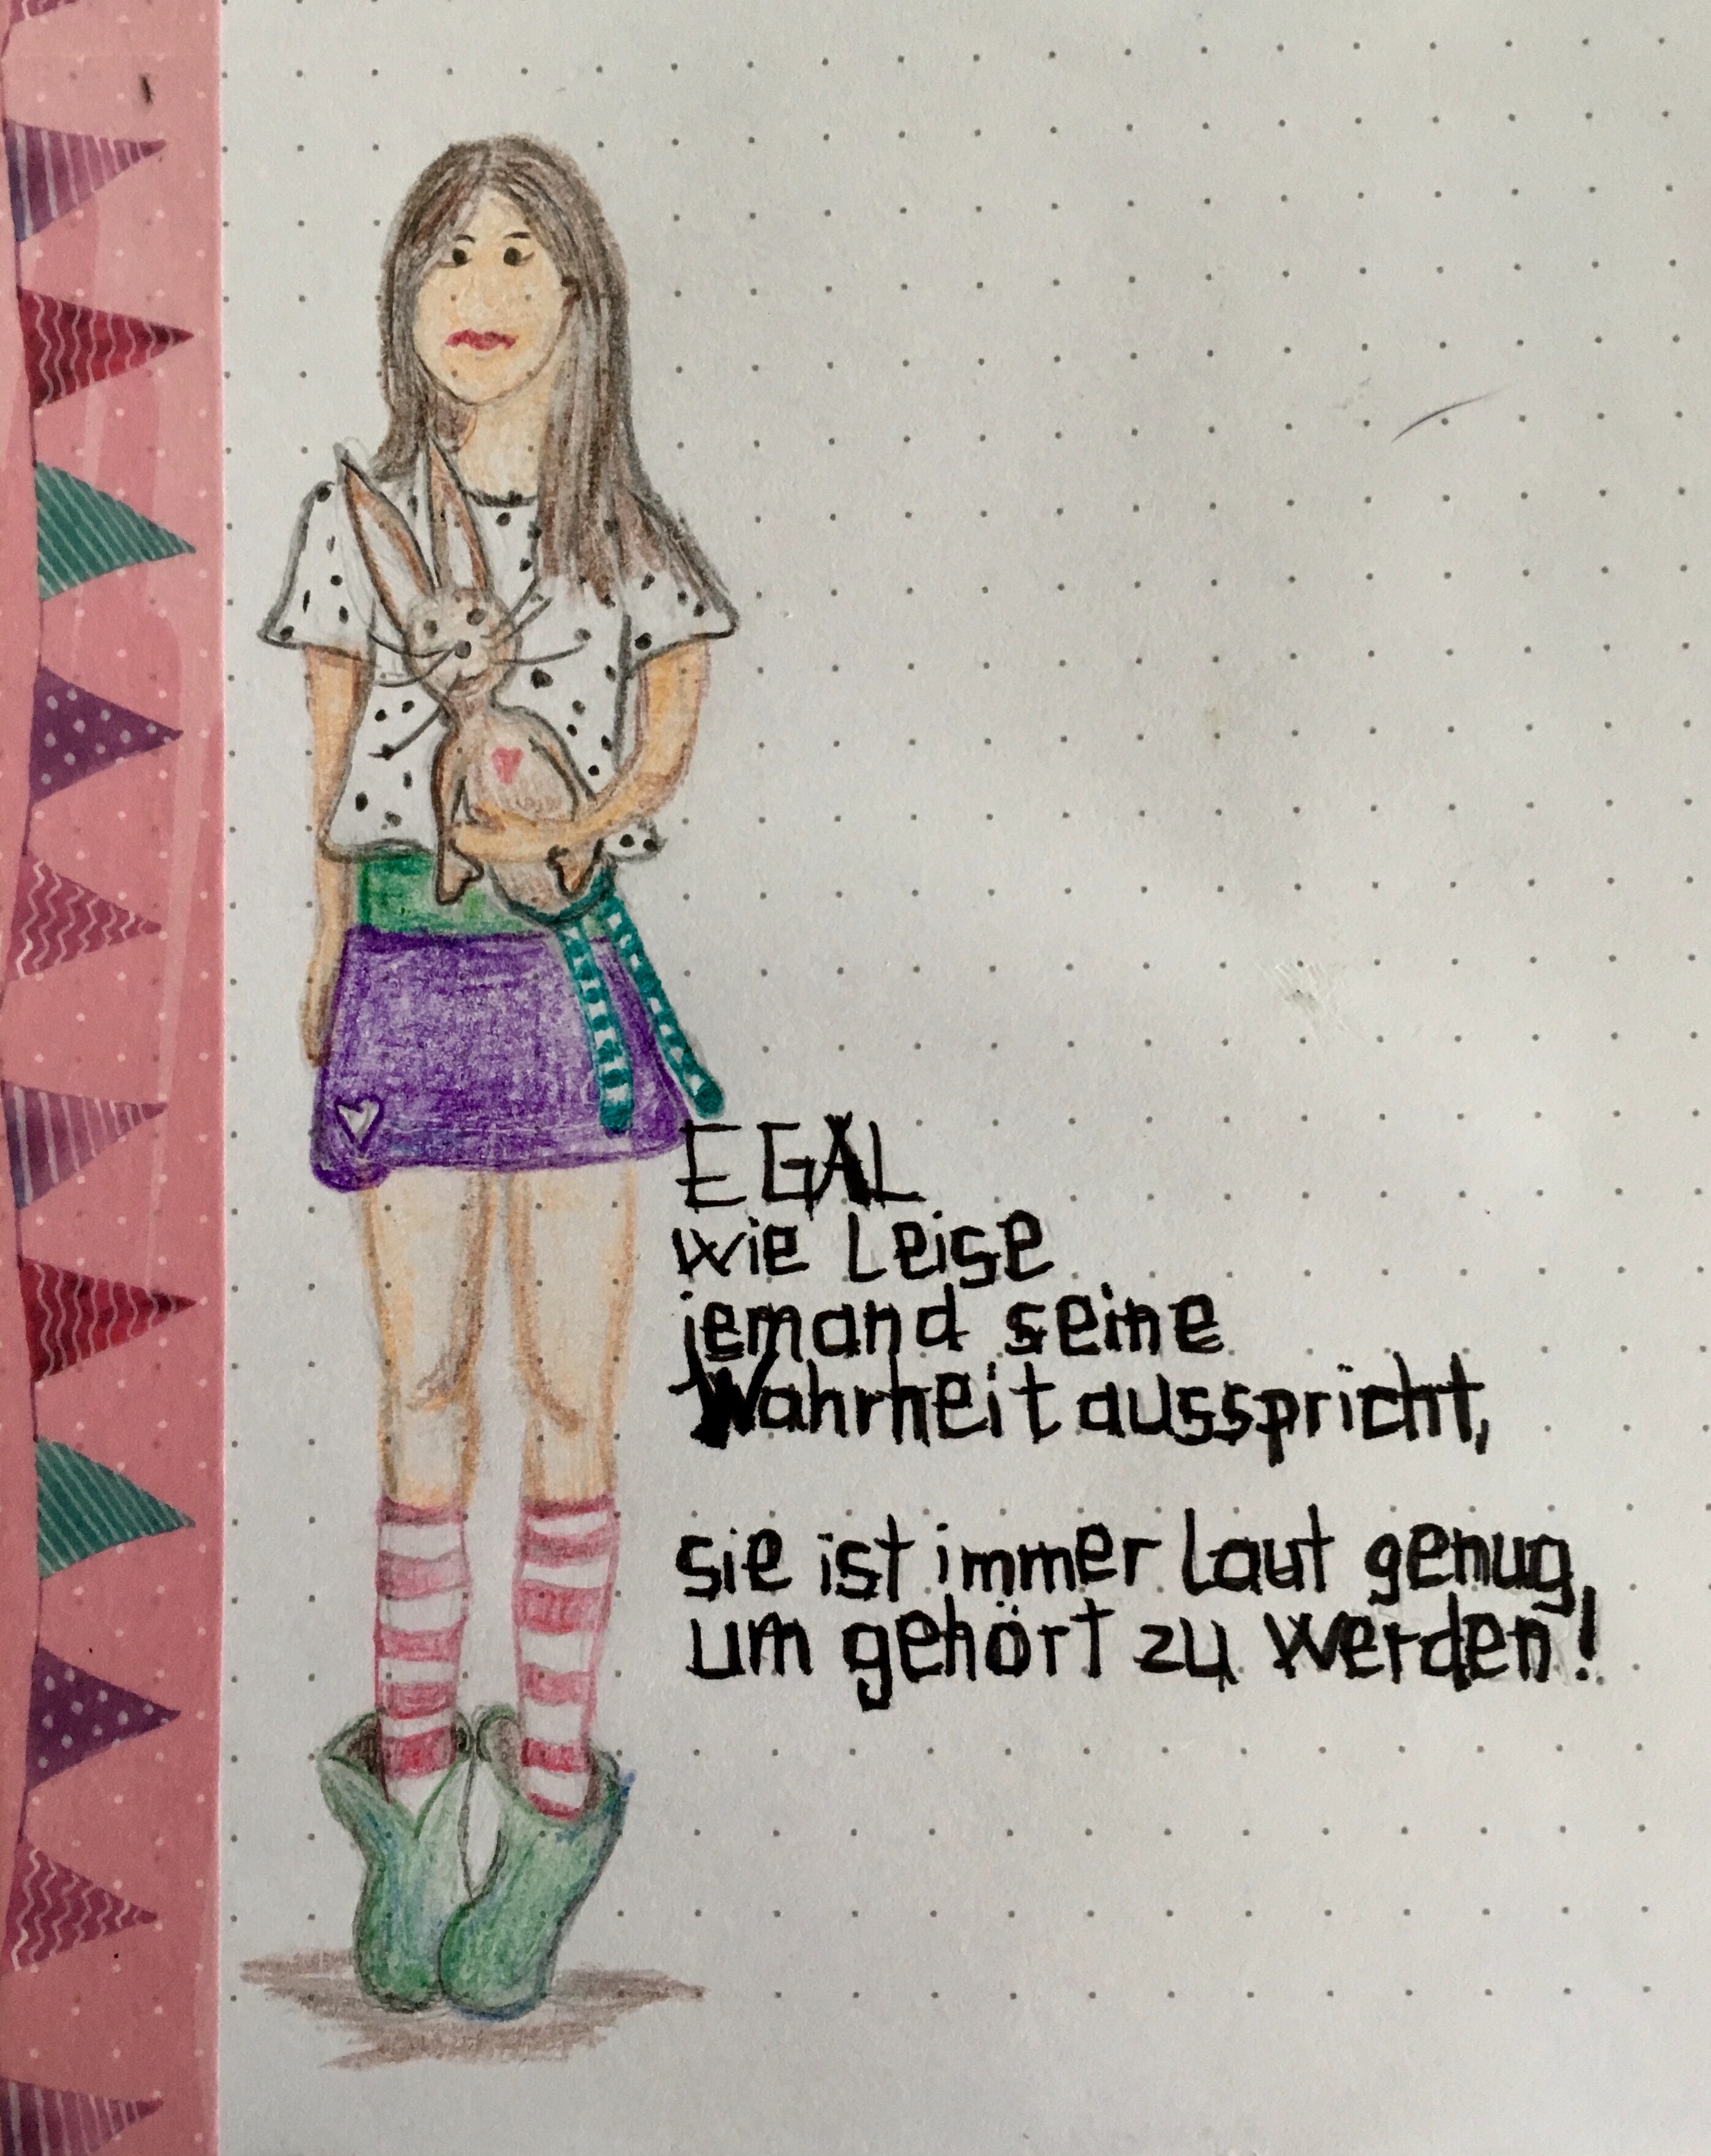 EGAL
wie Leise
jemand seine
Wahrheit ausspricht,
sie ist immer laut genug,
um gehört zu werden!